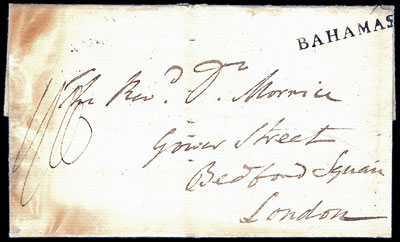 BAHAMAS
The Revd. Dr. Morrice
Gower Street
Bedford Square
London